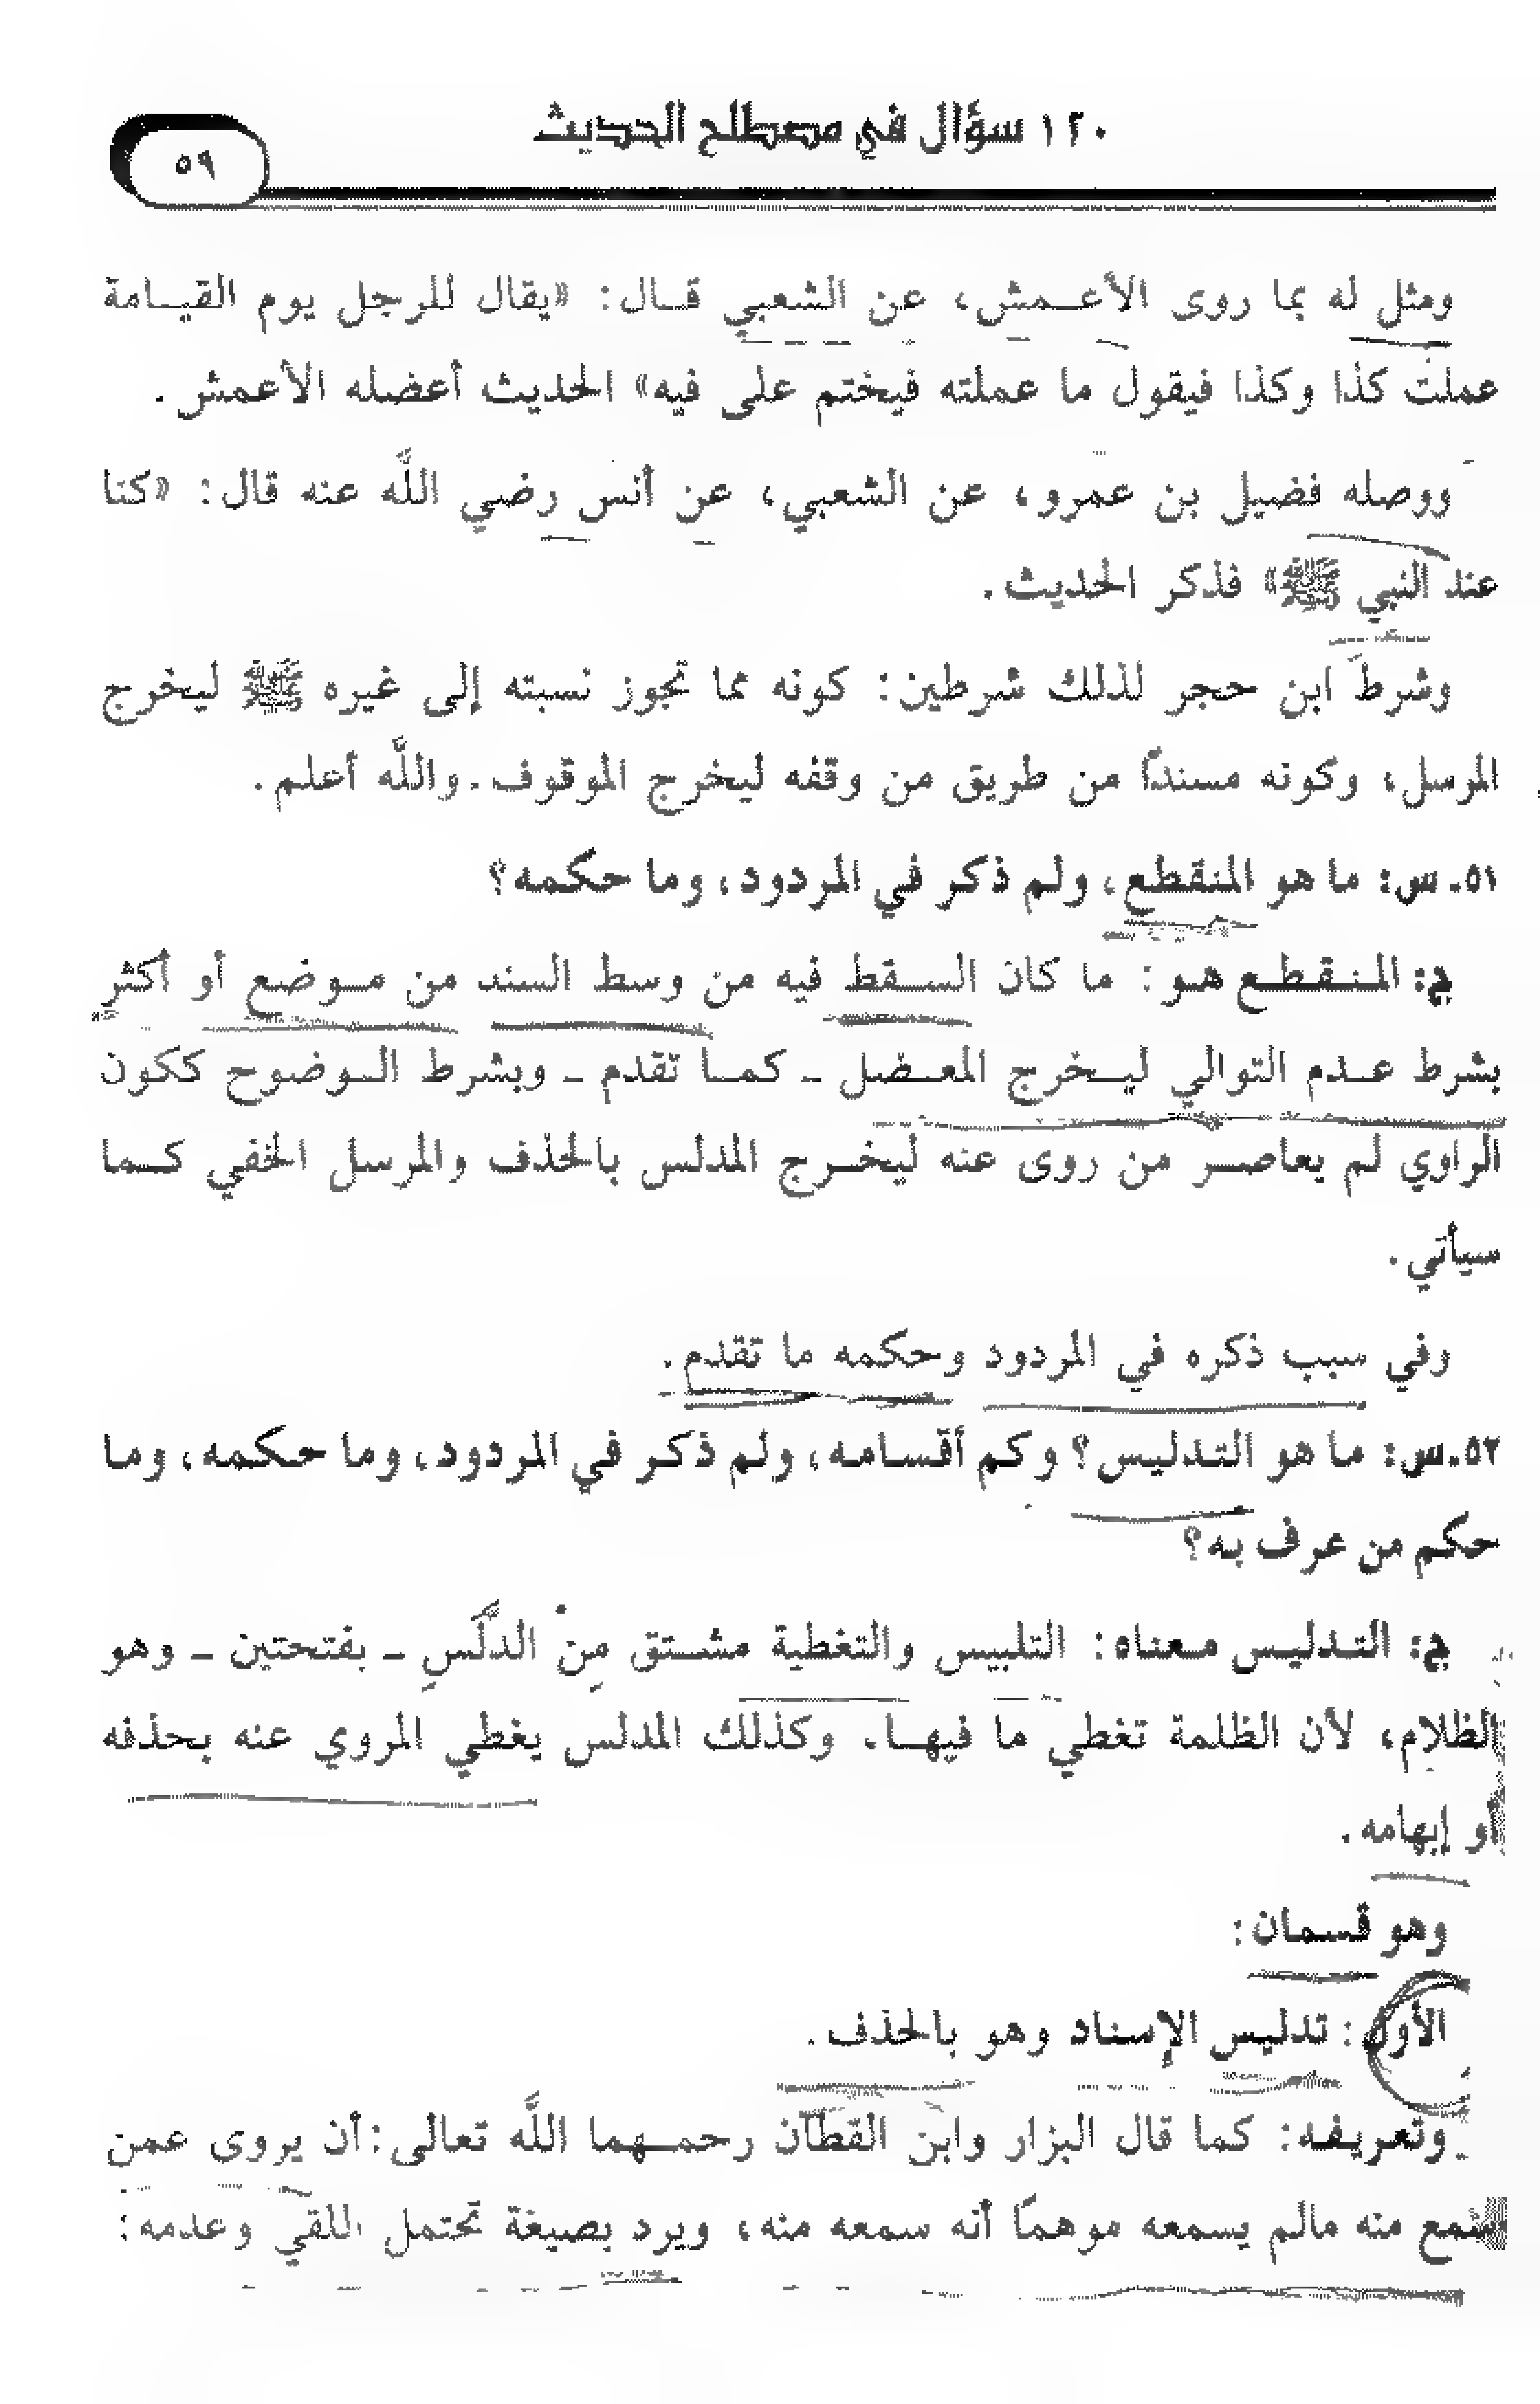 ١٢٠ سؤال في مصطلح الحديث
٥٩
ومثل له بما روى الأعمش، عن الشعبي قال: «يقال للرجل يوم القيامة
عملت كذا وكذا فيقول ما عملته فيختم على فيه» الحديث أعضله الأعمش.
ووصله فضيل بن عمرو، عن الشعبي، عن أنس رضي اللَّه عنه قال: «كنا
عند النبي ﷺ» فذكر الحديث.
وشرط ابن حجر لذلك شرطين: كونه مما تجوز نسبته إلى غيره ﷺ ليخرج
المرسل، وكونه مسندًا من طريق من وقفه ليخرج الموقوف. واللَّه أعلم.
٥١ـ س: ما هو المنقطع، ولم ذكر في المردود، وما حكمه؟
ج: المنقطع هو: ما كان السقط فيه من وسط السند من موضع أو أكثر
بشرط عدم التوالي ليخرج المعضل ـ كما تقدم ـ وبشرط الوضوح ككون
الراوي لم يعاصر من روى عنه ليخرج المدلس بالحذف والمرسل الخفي كما
سيأتي.
وفي سبب ذكره في المردود وحكمه ما تقدم.
٥٢ـ س: ما هو التدليس؟ وكم أقسامه، ولم ذكر في المردود، وما حكمه، وما
حكم من عرف به؟
ج: التدليس معناه: التلبيس والتغطية مشتق مِنْ الدلَّسِ ـ بفتحتين ـ وهو
الظلام، لأن الظلمة تغطي ما فيها، وكذلك المدلس يغطي المروي عنه بحذفه
أو إبهامه.
وهو قسمان:
الأول: تدليس الإسناد وهو بالحذف.
وتعريفه: كما قال البزار وابن القطان رحمهما اللَّه تعالى: أن يروى عمن
سمع منه مالم يسمعه موهمًا أنه سمعه منه، ويرد بصيغة تحتمل اللقي وعدمه: